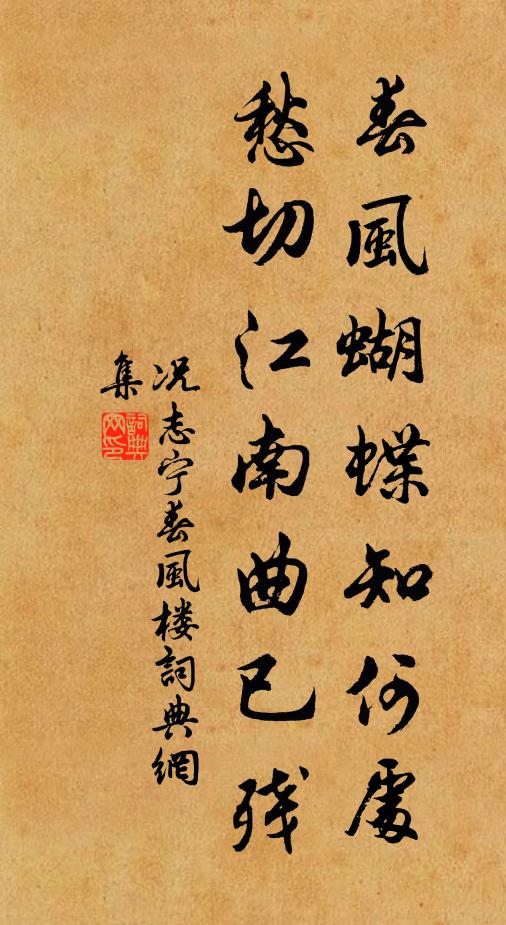 春風蝴蝶知何處
愁切江南曲已残
况志宁春風楼詞典網
集
詞典
网印